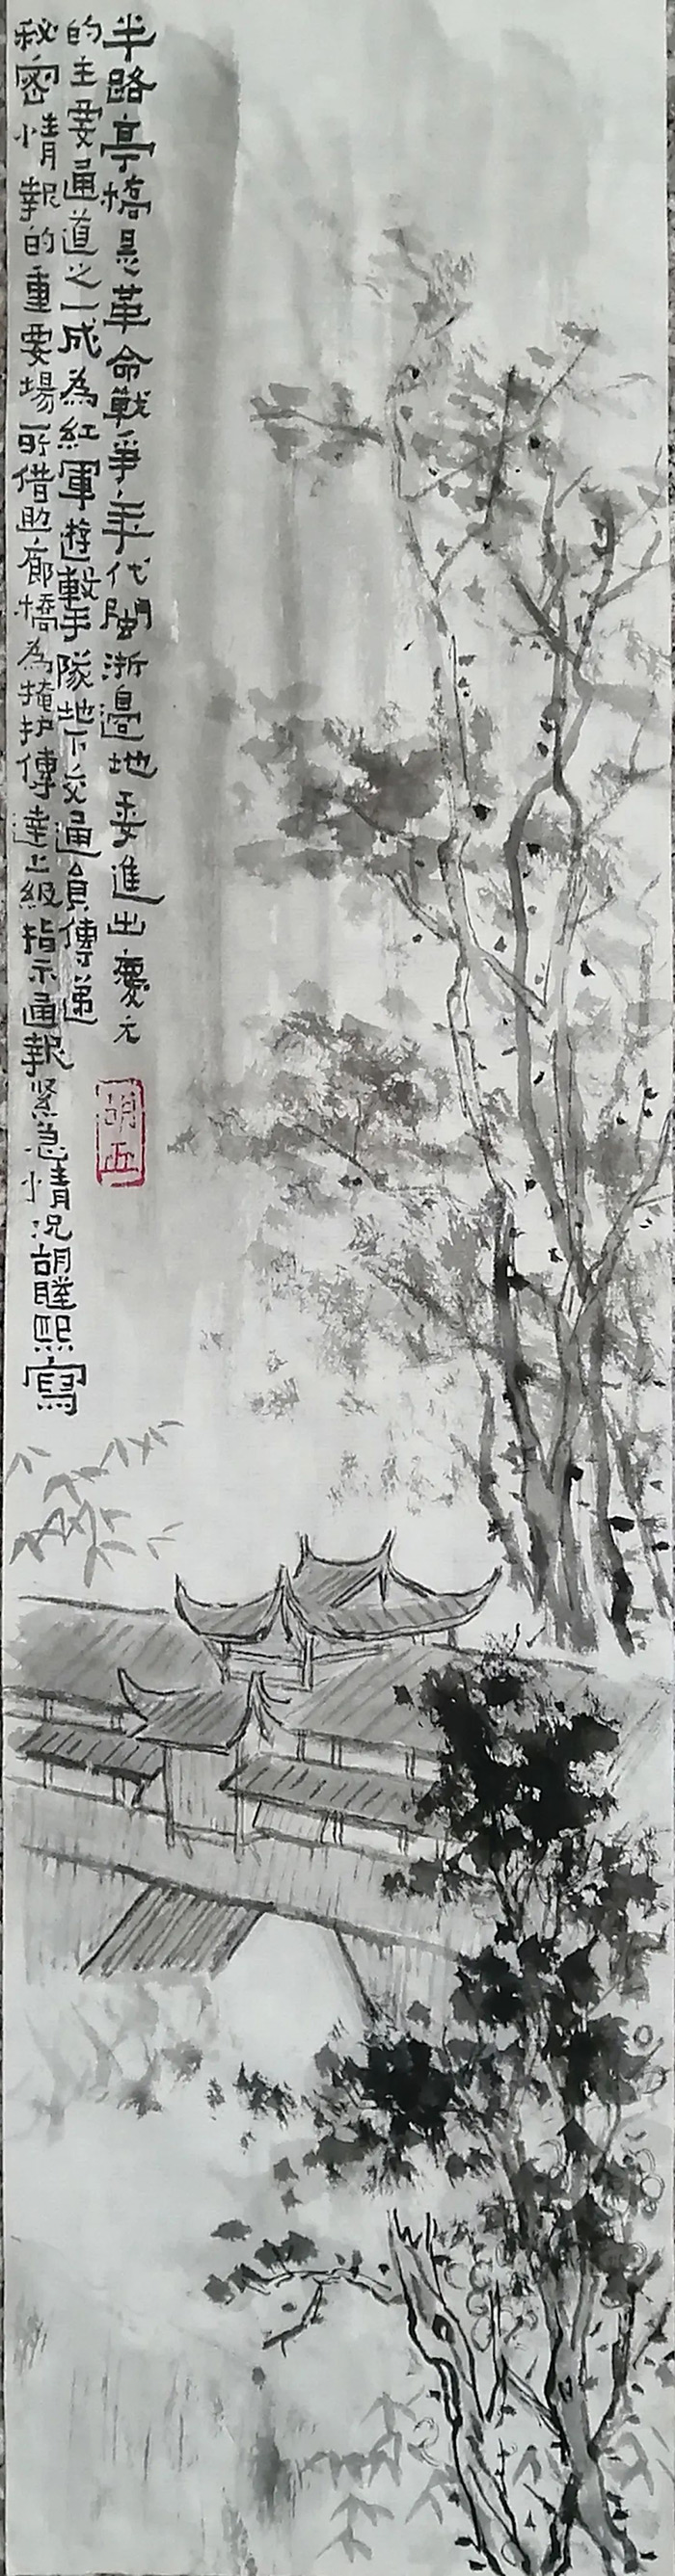 半路亭橋是革命戰爭年代閩浙邊地委進出慶元
的主要通道之一成為紅軍遊擊隊地下交通員傳遞
秘密情報的重要場所借助廊橋為掩护傳達上級指示通報緊急情况胡
熙寫
胡